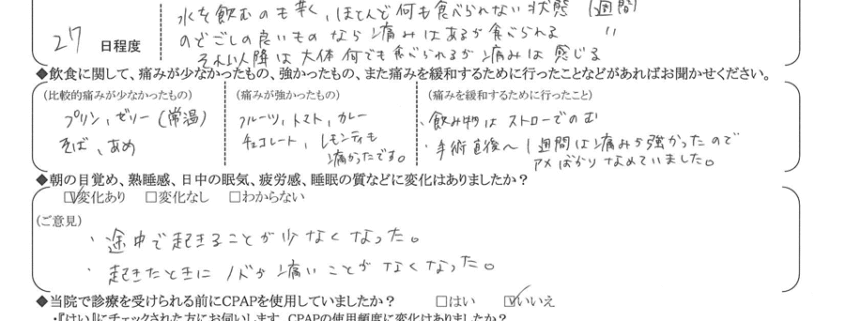 水を飲むのも辛く、ほとんど何も食べられない状態 1週間
27 日程度
のどごしの良いものなら痛みはあるが食べられる 〃
それ以降は大体何でも食べられるが痛みは感じる
◆飲食に関して、痛みが少なかったもの、強かったもの、また痛みを緩和するために行ったことなどがあればお聞かせください。
(比較的痛みが少なかったもの)
プリン、ゼリー(常温)
そば、あめ
(痛みが強かったもの)
フルーツ、トマト、カレー
チョコレート、レモンティも
痛かったです。
(痛みを緩和するために行ったこと)
・飲み物はストローでのむ
・手術直後〜1週間は痛みが強かったので
アメばかりなめていました。
◆朝の目覚め、熟睡感、日中の眠気、疲労感、睡眠の質などに変化はありましたか?
☑変化あり □変化なし □わからない
(ご意見)
・途中で起きることが少なくなった。
・起きたときにノドが痛いことがなくなった。
◆当院で診療を受けられる前にCPAPを使用していましたか? □はい ☑いいえ
・『はい』にチェックされた方にお伺いします。CPAPの使用頻度に変化はありましたか?